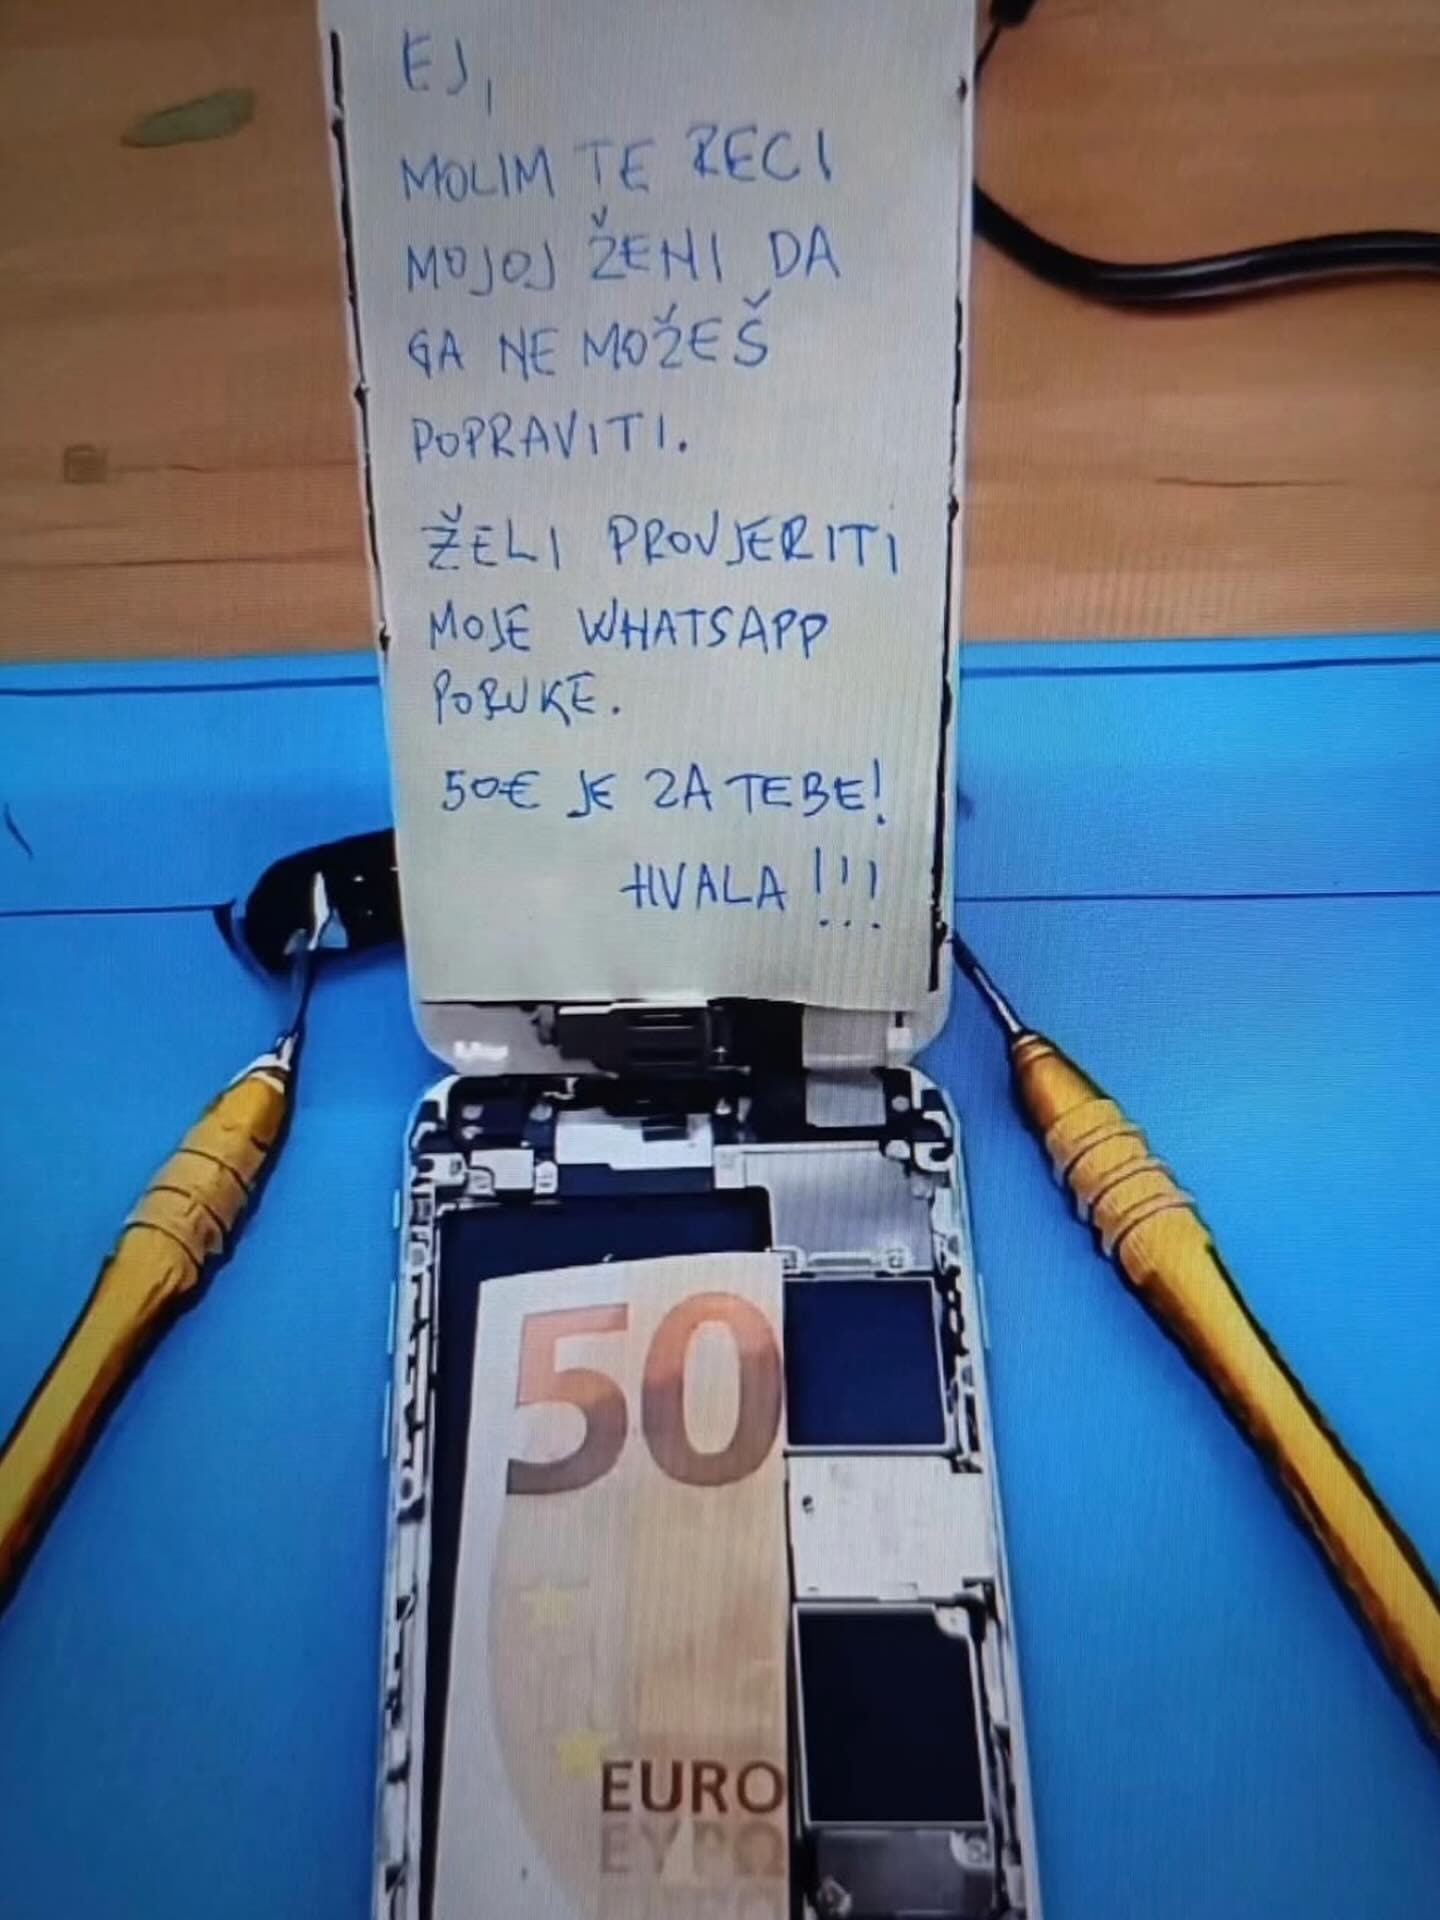 EJ,
MOLIM TE RECI
MOJOJ ŽENI DA
GA NE MOŽEŠ
POPRAVITI.
ŽELI PROVJERITI
MOJE WHATSAPP
PORUKE.
50€ JE ZA TEBE!
HVALA!!!
50
EURO
ΕΥΡΩ